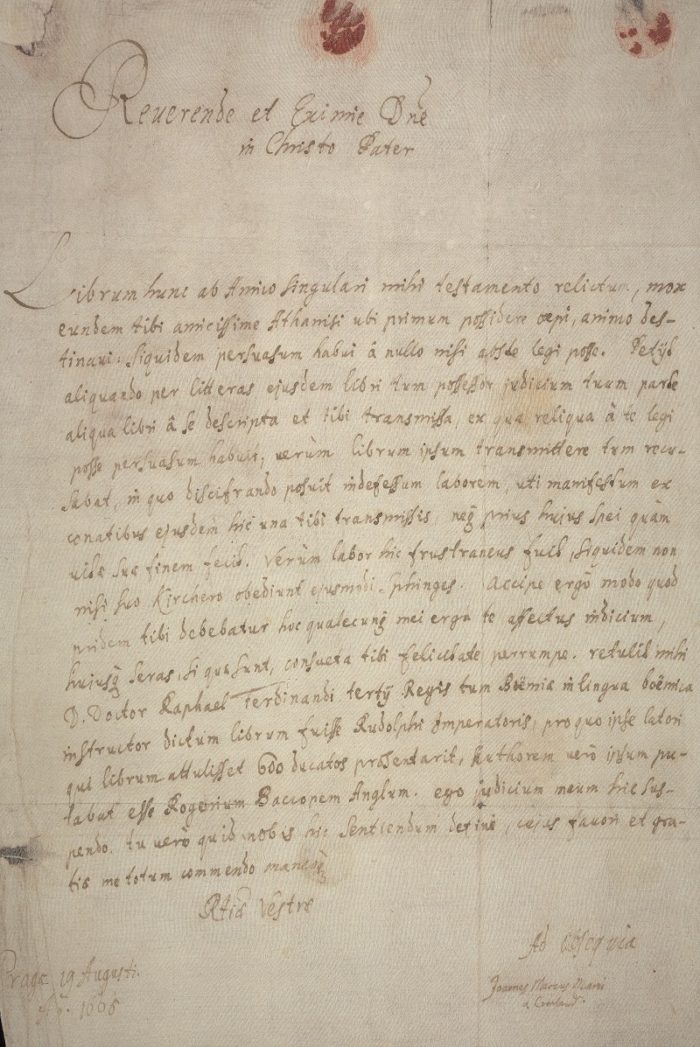 Reverende et Eximie Dne
in Christo Pater
Librum hunc ab Amico singulari mihi testamento relictum, mox
eundem tibi amicissime Athanasi ubi primum possidere cœpi, animo des-
tinavi: siquidem persuasum habui à nullo nisi abste legi posse. Petijt
aliquando per litteras ejusdem libri tum possessor judicium tuum parte
aliqua libri à se descripta et tibi transmissa, ex qua reliqua à te legi
posse persuasum habuit; verùm librum ipsum transmittere tum recu-
sabat, in quo discifrando posuit indefessum laborem, uti manifestum ex
conatibus ejusdem hic unà tibi transmissis, neq prius hujus spei quàm
vitæ suæ finem fecit. Verùm labor hic frustraneus fuit, siquidem non
nisi suo Kirchero obediunt ejusmodi sphinges. Accipe ergò modo quod
pridem tibi debebatur hoc qualecunq mei erga te affectus indicium,
hujusq seras, si quæ sunt, consueta tibi felicitate perrumpe. retulit mihi
D. Doctor Raphael Ferdinandi tertij Regis tum Boëmiæ in lingua boëmica
instructor dictum librum fuisse Rudolphi Imperatoris, pro quo ipse latori
qui librum attulisset 600 ducatos præsentarit, Authorem verò ipsum pu-
tabat esse Rogerium Bacconem Anglum. ego judicium meum hic sus-
pendo. tu verò quid nobis hic sentiendum defini, cujus favori et gra-
tiæ me totum commendo maneoq
Rtiæ Vestræ
Ad Obsequia
Joannes Marcus Marci
a Cronland
Pragæ 19 Augusti